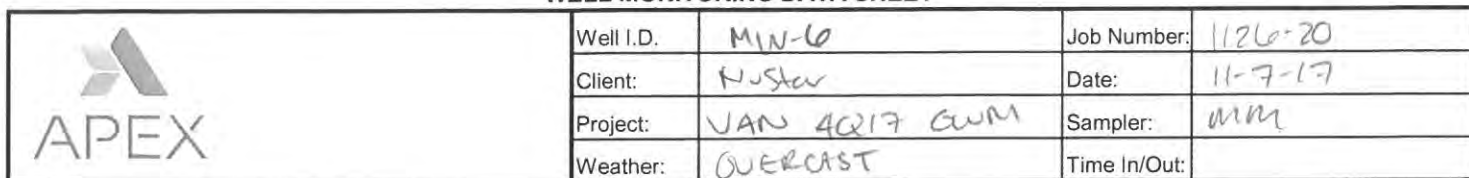 APEX
Well I.D. MW-6 Job Number: 1126-20
Client: NuStar Date: 11-7-17
Project: VAN 4Q17 GWM Sampler: MM
Weather: OVERCAST Time In/Out: